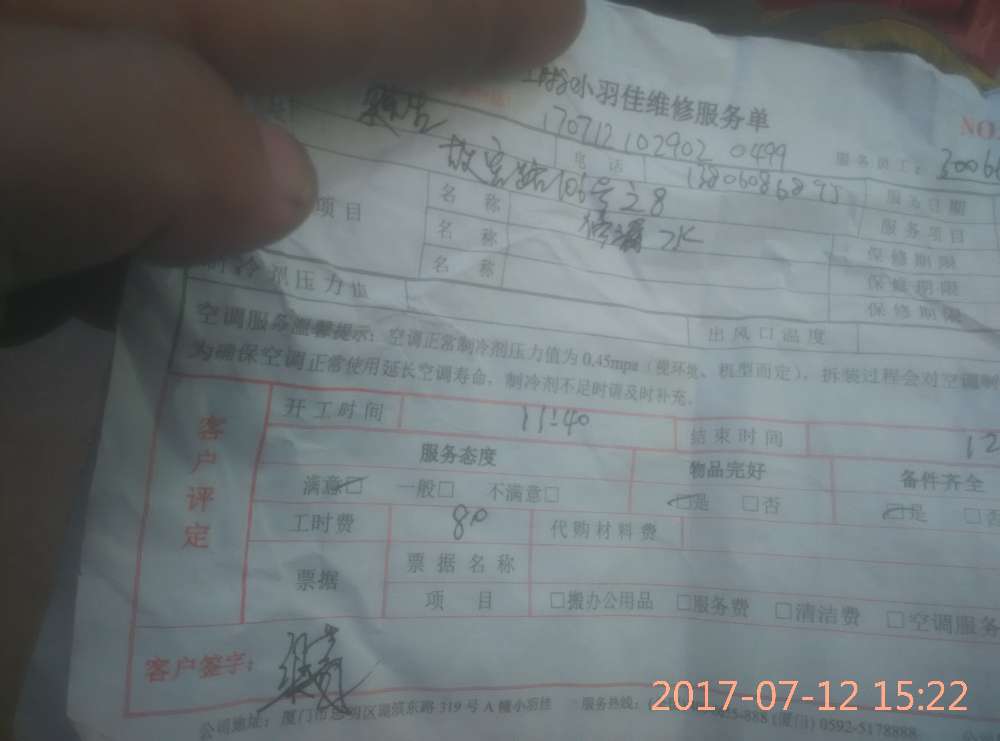 小羽佳维修服务单
NO
170712102902 0499
服务员工:
电话
服务日期
故宫路106号之8
项目
名称
服务项目
名称
水
保修期限
名称
保修期限
制冷剂压力值
保修期限
出风口温度
空调服务温馨提示:空调正常制冷剂压力值为0.45mpa(视环境、机型而定),拆装过程会对空调制
为确保空调正常使用延长空调寿命,制冷剂不足时请及时补充。
客户评定
开工时间 11:40 结束时间 12
服务态度 物品完好 备件齐全
满意□ 一般□ 不满意□ □是 □否 □是 □否
工时费 80 代购材料费
票据 票据名称
项目 □搬办公用品 □服务费 □清洁费 □空调服务
客户签字:
公司地址:厦门市思明区湖滨东路319号A幢小羽佳 服务热线: -888(厦门)0592-5178888
2017-07-12 15:22